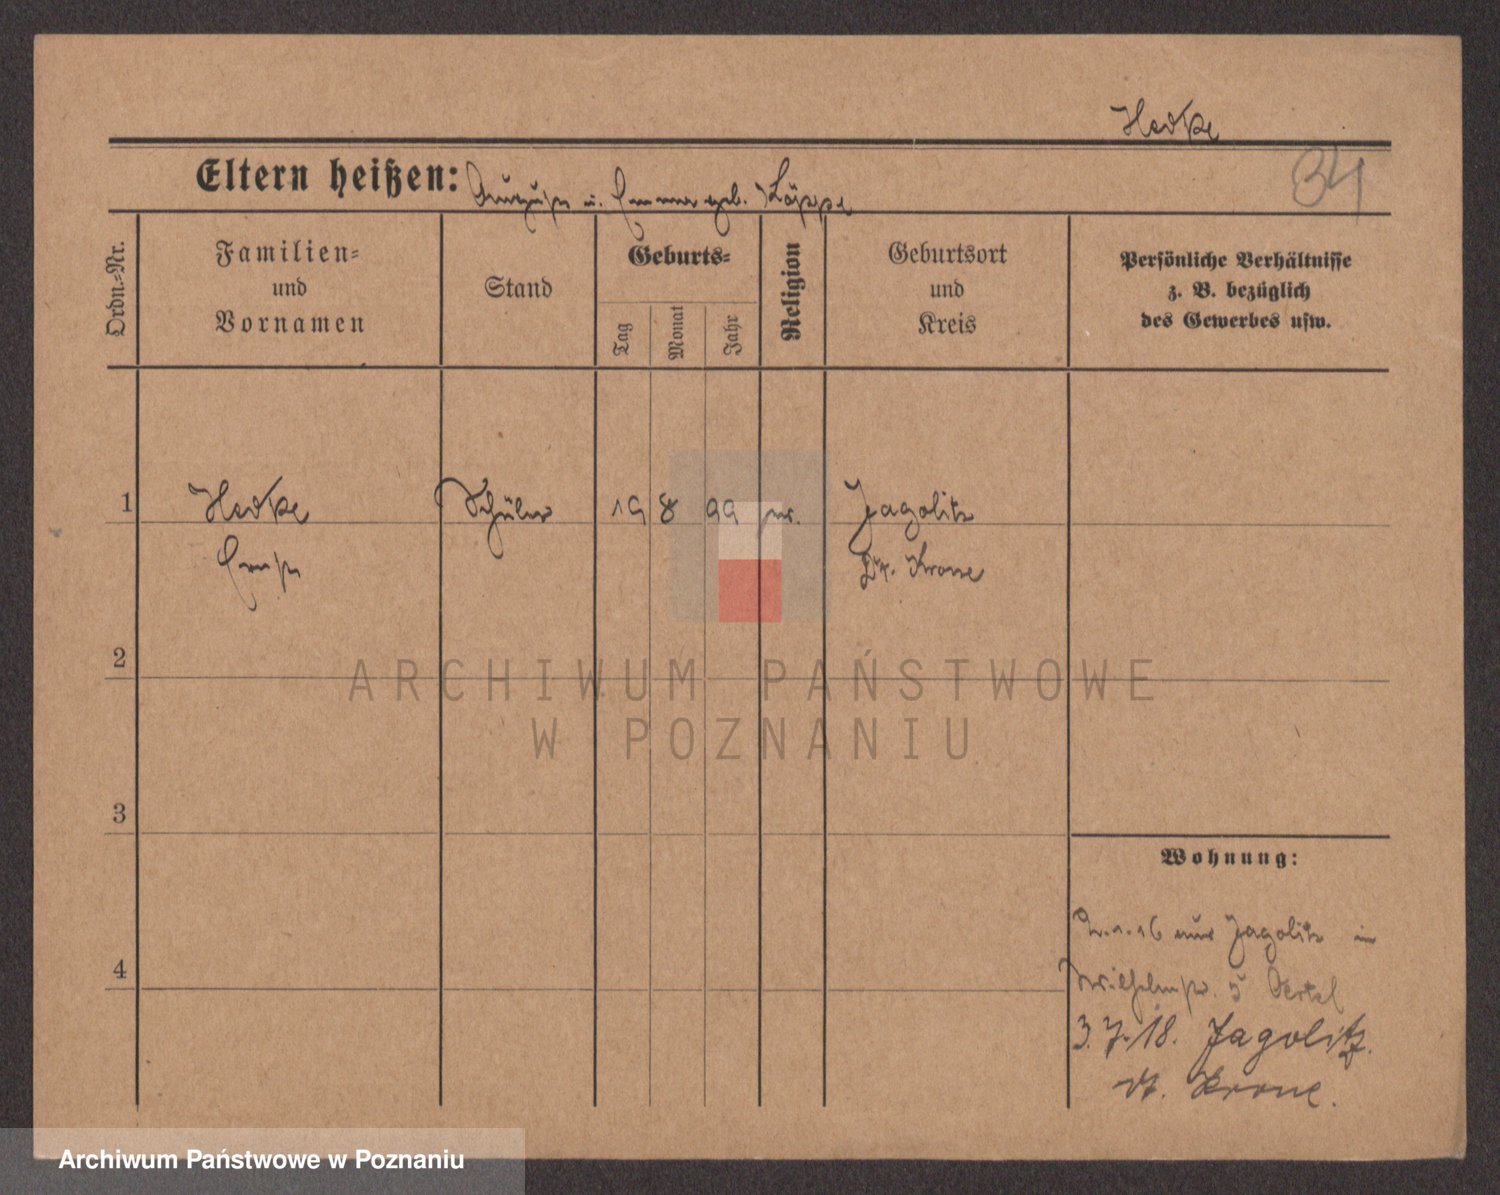 Hedke
34
Eltern heißen: August u. Emma geb. Köppe
Ordn.-Nr.
Familien-
und
Vornamen
Stand
Geburts-
Tag
Monat
Jahr
Religion
Geburtsort
und
Kreis
Persönliche Verhältnisse
z. B. bezüglich
des Gewerbes usw.
1 Hedke Schüler 19 8 99 Jagolitz
Ernst Dt. Krone
2
3
4
Wohnung:
1.16 aus Jagolitz in
Wilhelmstr. 5 Oertel
3.7.18. Jagolitz
Dt. Krone.
ARCHIWUM PAŃSTWOWE
W POZNANIU
Archiwum Państwowe w Poznaniu